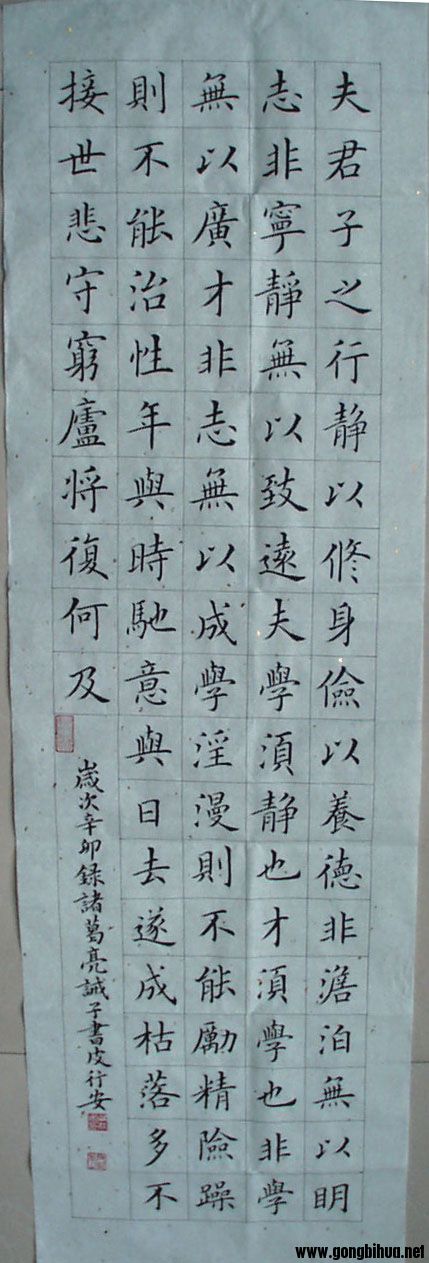 夫君子之行静以修身儉以養德非澹泊無以明
志非寧靜無以致遠夫學須静也才須學也非學
無以廣才非志無以成學淫漫則不能勵精險躁
則不能治性年與時馳意與日去遂成枯落多不
接世悲守窮廬将復何及
歲次辛卯録諸葛亮誡子書皮行安
www.gongbihua.net